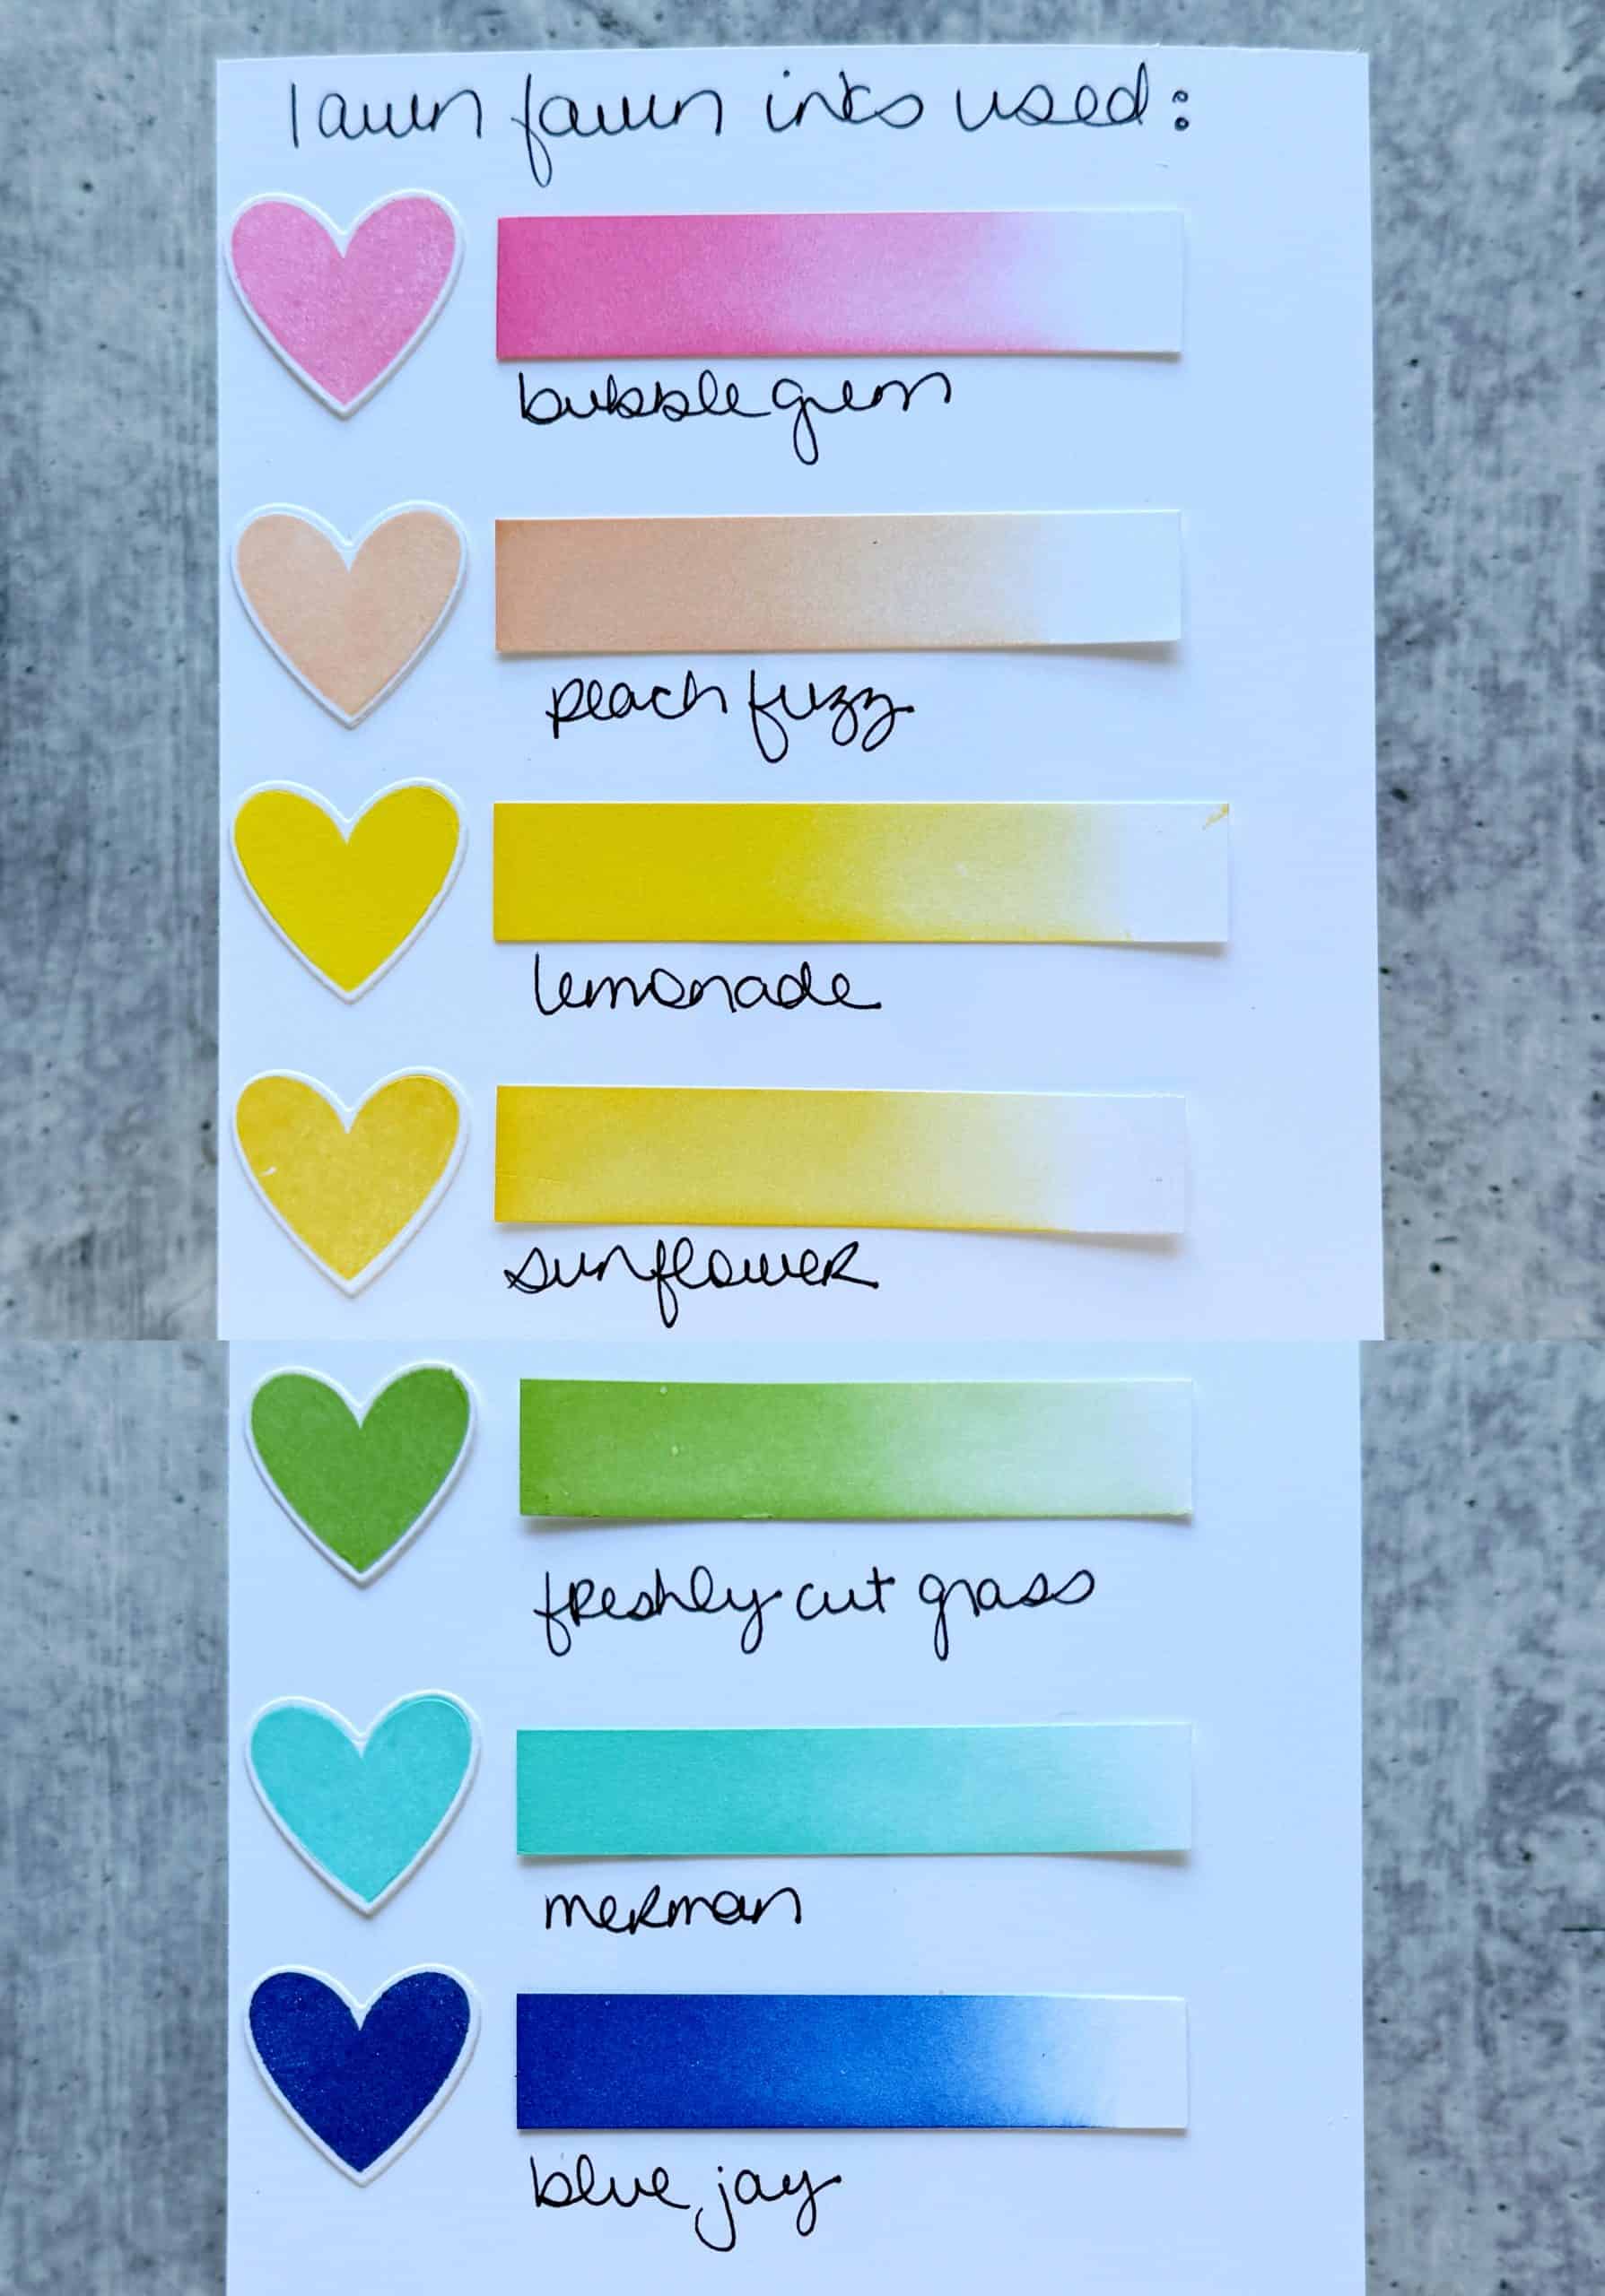 lawn fawn inks used:
bubblegum
peach fuzz
lemonade
sunflower
freshly cut grass
merman
blue jay